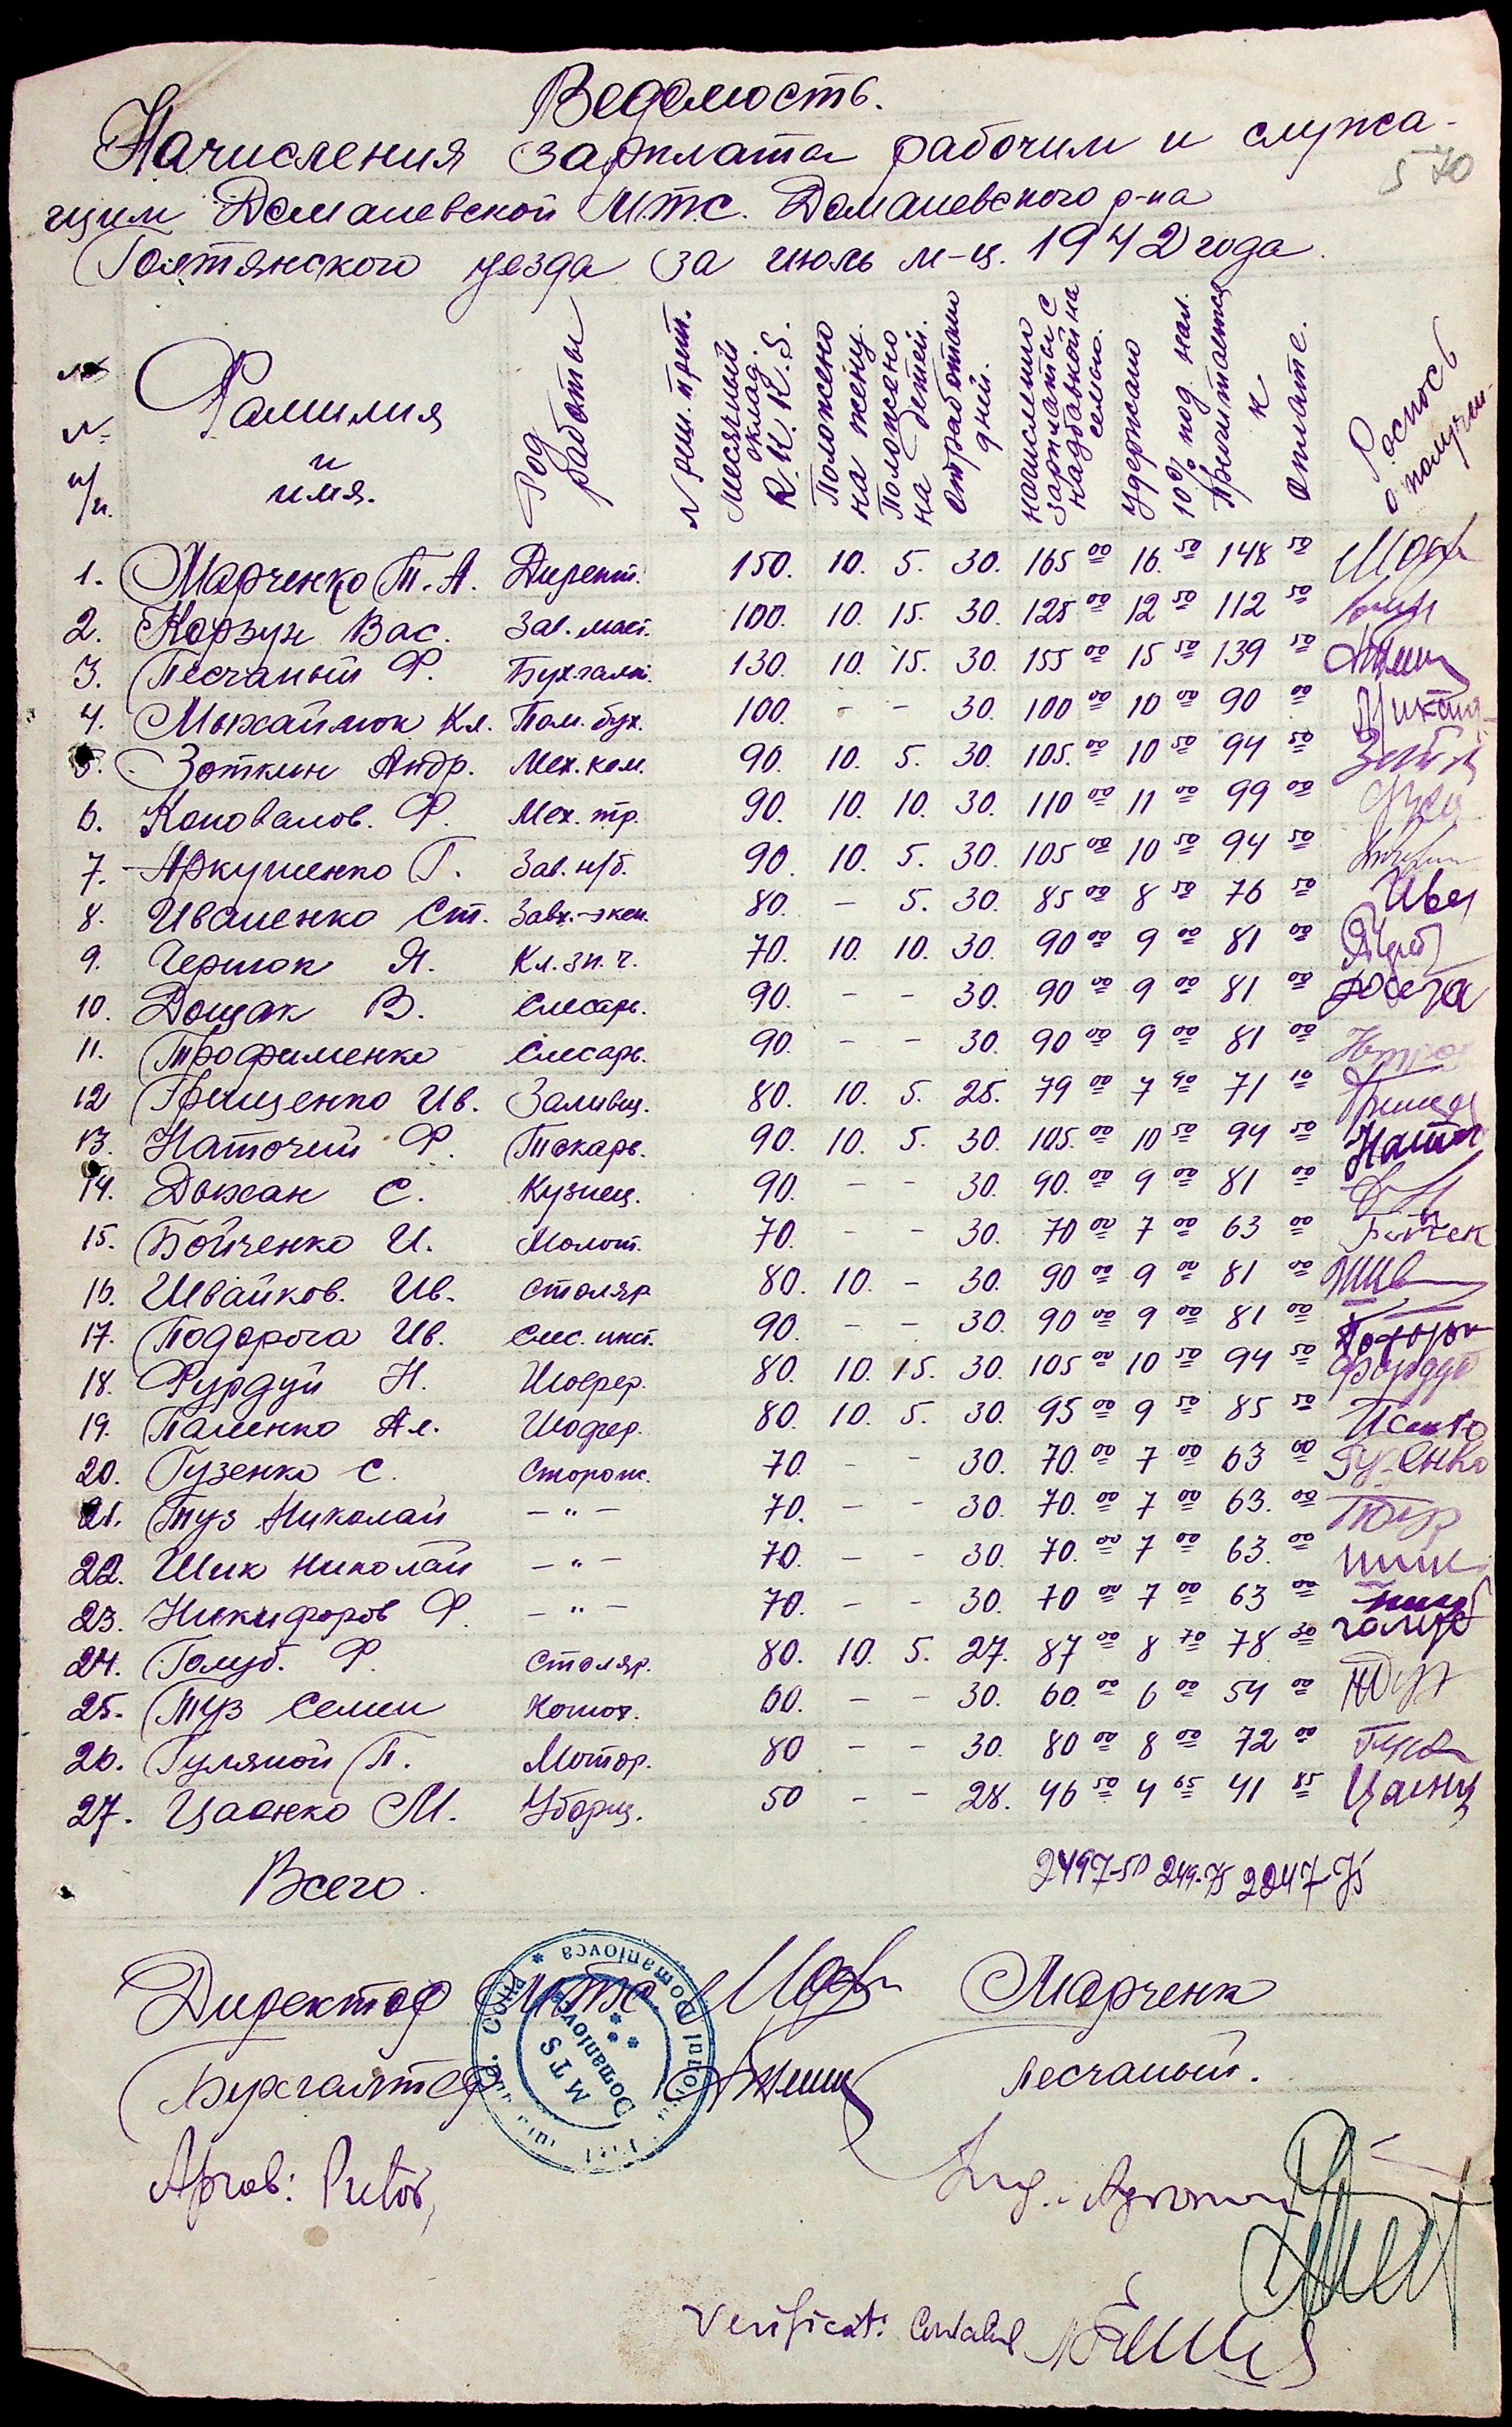 Ведомость.
Начисления зарплаты рабочим и служа-
щим Доманевской М.Т.С. Доманевского р-на
Голтянского уезда за июль м-ц. 1942 года.
570
№ № п/п.
Фамилия и имя.
Род работы
Месячный оклад. R.K.K.S.
Положено на жену.
Положено на детей.
Отработано дней.
Начислено зарплаты с надбавкой на семью.
Удержано 10% под. нал.
Причитается к оплате.
Роспись о получен.
1. Марченко Т.А. Директ. 150. 10. 5. 30. 165 00 16. 50 148 50
2. Корзун Вас. Зав. маст. 100. 10. 15. 30. 125 00 12 50 112 50
3. Песчаный Ф. Бухгалт. 130. 10. 15. 30. 155 00 15 50 139 50
4. Михайлюк Кл. Пом. бух. 100. - - 30. 100 00 10 00 90 00
5. Зоткин Андр. Мех. ком. 90. 10. 5. 30. 105. 00 10 50 94 50
6. Коновалов. Ф. Мех. тр. 90. 10. 10. 30. 110 00 11 00 99 00
7. Аркушенко Г. Зав. н/б. 90. 10. 5. 30. 105 00 10 50 94 50
8. Иваненко Ст. Завх.-экси. 80. - 5. 30. 85 00 8 50 76 50
9. Чернюк Я. Кл. зп. ч. 70. 10. 10. 30. 90 00 9 00 81 00
10. Дощак В. Слесарь. 90. - - 30. 90 00 9 00 81 00
11. Трофименко Слесарь. 90. - - 30. 90 00 9 00 81 00
12 Грищенко Ив. Заливщ. 80. 10. 5. 25. 79 00 7 90 71 10
13. Наточий Ф. Токарь. 90. 10. 5. 30. 105. 00 10 50 94 50
14. Дожан С. Кузнец. 90. - - 30. 90. 00 9 00 81 00
15. Бойченко И. Молот. 70. - - 30. 70 00 7 00 63 00
16. Швайков. Ив. Столяр 80. 10. - 30. 90 00 9 00 81 00
17. Подорога Ив. Слес. инст. 90. - - 30. 90 00 9 00 81 00
18. Фурдуй Н. Шофер. 80. 10. 15. 30. 105 00 10 50 94 50
19. Паленко Ал. Шофер. 80. 10. 5. 30. 95 00 9 50 85 50
20. Гузенко С. Сторож. 70. - - 30. 70. 00 7 00 63 00 Гузенко
21. Туз Николай - " - 70. - - 30. 70. 00 7 00 63. 00
22. Шик Николай - " - 70. - - 30. 70. 00 7 00 63. 00 шик
23. Никифоров Ф. - " - 70. - - 30. 70 00 7 00 63 00
24. Голуб. Ф. Столяр. 80. 10. 5. 27. 87 00 8 70 78. 30 голуб
25. Туз Семен Конюх. 60. - - 30. 60. 00 6 00 54 00
26. Гуляной П. Мотор. 80 - - 30. 80 00 8 00 72 00
27. Цаенко М. Уборщ. 50 - - 28. 46 50 4 65 41 85
Всего. 2497-50 249-75 2247-75
Директор МТС. Марченк
Бухгалтер Песчаный.
MTS Domaniovca
Domaniovca
Aprob: Pretor,
Ing. Agronom
Verificat: Contabil